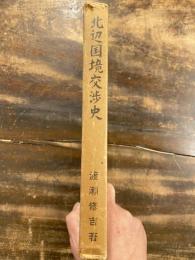 北辺国境交渉史
渡瀬修吉著